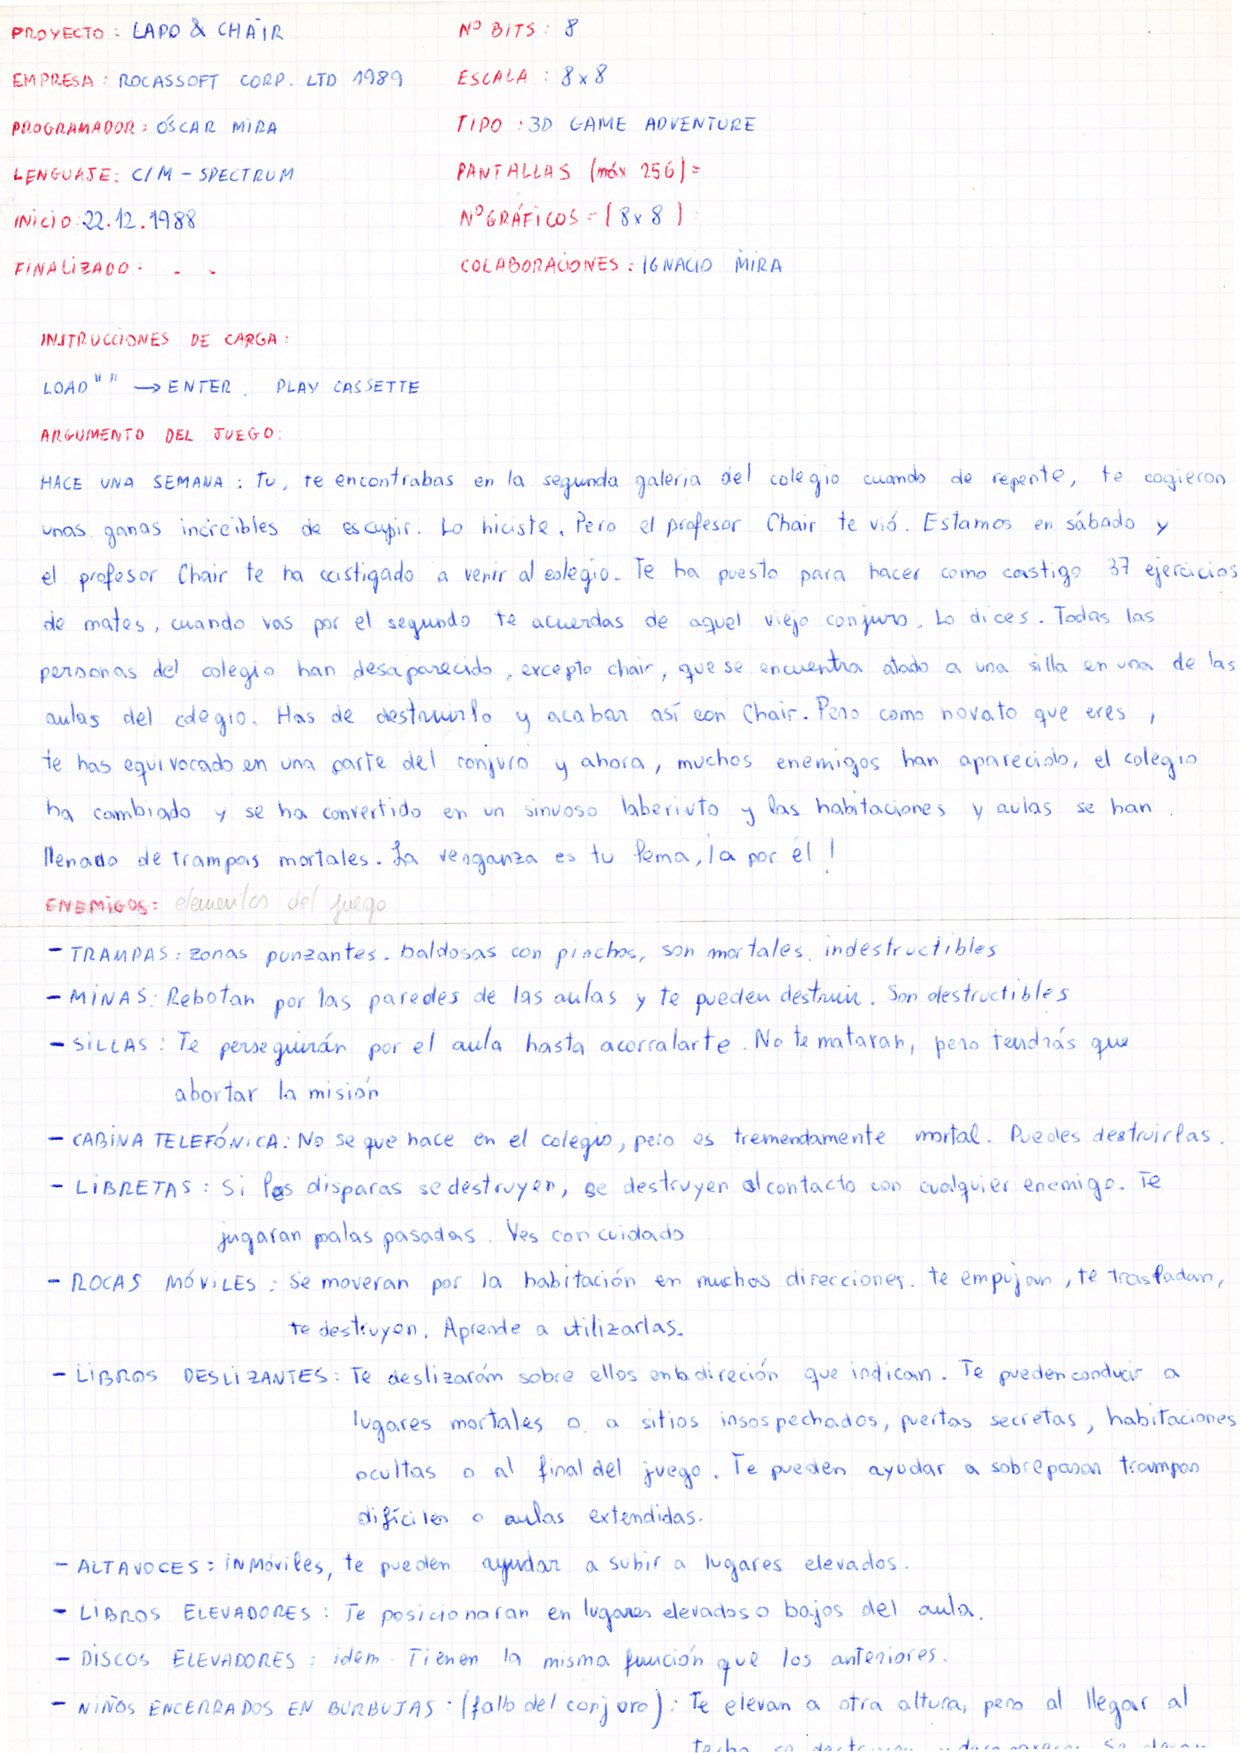 PROYECTO : LAPO & CHAIR
Nº BITS : 8
EMPRESA : ROCASSOFT CORP. LTD 1989
ESCALA : 8x8
PROGRAMADOR : ÓSCAR MIRA
TIPO : 3D GAME ADVENTURE
LENGUAJE : C/M - SPECTRUM
PANTALLAS (máx 256) =
INICIO : 22.12.1988
Nº GRÁFICOS = (8x8) :
FINALIZADO : . .
COLABORACIONES : IGNACIO MIRA
INSTRUCCIONES DE CARGA :
LOAD "" → ENTER . PLAY CASSETTE
ARGUMENTO DEL JUEGO :
HACE UNA SEMANA : Tu, te encontrabas en la segunda galeria del colegio cuando de repente, te cogieron
unas ganas increibles de escupir. Lo hiciste. Pero el profesor Chair te vió. Estamos en sábado y
el profesor Chair te ha castigado a venir al colegio. Te ha puesto para hacer como castigo 37 ejercicios
de mates, cuando vas por el segundo te acuerdas de aquel viejo conjuro. Lo dices. Todas las
personas del colegio han desaparecido, excepto chair, que se encuentra atado a una silla en una de las
aulas del colegio. Has de destruirlo y acabar así con Chair. Pero como novato que eres,
te has equivocado en una parte del conjuro y ahora, muchos enemigos han aparecido, el colegio
ha cambiado y se ha convertido en un sinuoso laberinto y las habitaciones y aulas se han
llenado de trampas mortales. La venganza es tu lema, ¡a por él!
ENEMIGOS : elementos del juego
- TRAMPAS : zonas punzantes. baldosas con pinchos, son mortales. indestructibles
- MINAS : Rebotan por las paredes de las aulas y te pueden destruir. Son destructibles
- SILLAS : Te perseguirán por el aula hasta acorralarte. No te mataran, pero tendrás que
abortar la misión
- CABINA TELEFÓNICA : No se que hace en el colegio, pero es tremendamente mortal. Puedes destruirlas.
- LIBRETAS : Si las disparas se destruyen, se destruyen al contacto con cualquier enemigo. Te
jugaran malas pasadas. Ves con cuidado
- ROCAS MÓVILES : Se moveran por la habitación en muchas direcciones. te empujan, te trasladan,
te destruyen. Aprende a utilizarlas.
- LIBROS DESLIZANTES : Te deslizarán sobre ellos en la direción que indican. Te pueden conducir a
lugares mortales o a sitios insospechados, puertas secretas, habitaciones
ocultas o al final del juego. Te pueden ayudar a sobrepasar trampas
difíciles o aulas extendidas.
- ALTAVOCES : inmóviles, te pueden ayudar a subir a lugares elevados.
- LIBROS ELEVADORES : Te posicionaran en lugares elevados o bajos del aula.
- DISCOS ELEVADORES : idem. Tienen la misma función que los anteriores.
- NIÑOS ENCERRADOS EN BURBUJAS : (fallo del conjuro) : Te elevan a otra altura, pero al llegar al